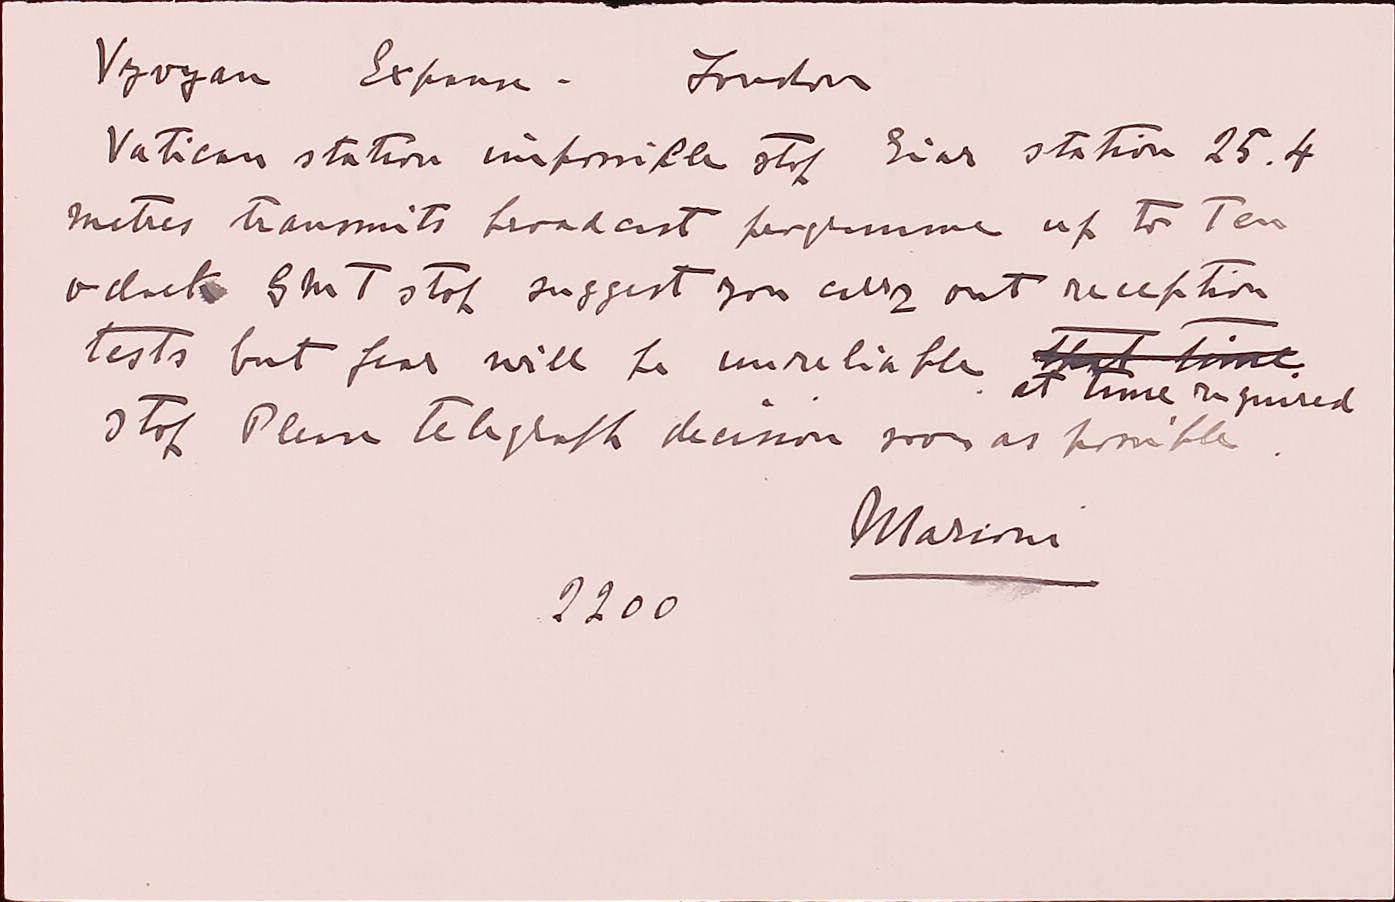 Vyvyan Expanse - London
Vatican station impossible stop Eiar station 25.4
metres transmits broadcast programme up to Ten
o'clock GMT stop suggest you carry out reception
tests but fear will be unreliable ~~that time~~
at time required
stop Please telegraph decision soon as possible.
Marconi
2200